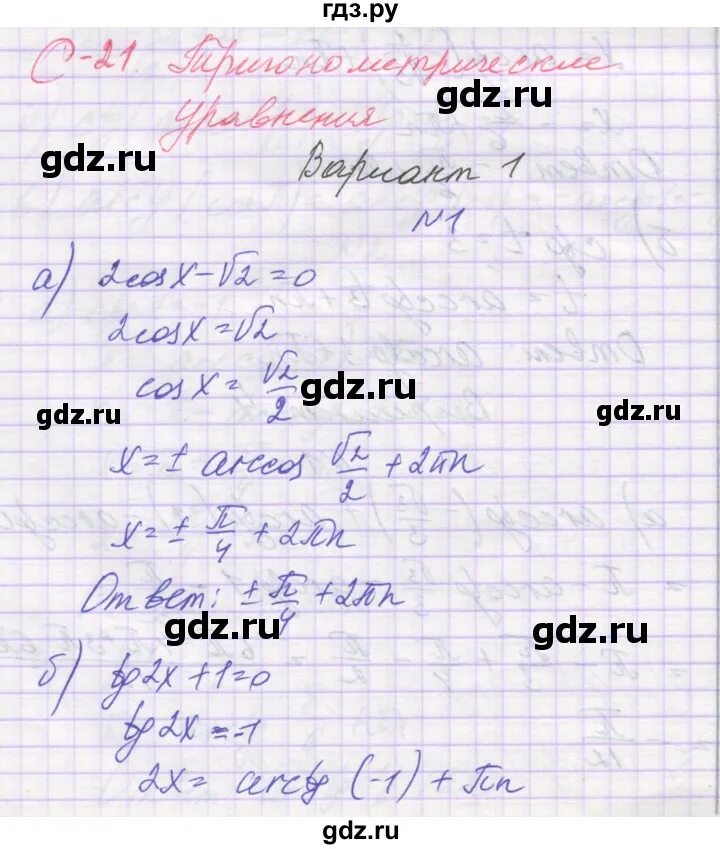 гдз.ру
С-21. Тригонометрические
уравнения
gdz.ru
gdz.ru
Вариант 1
№1
а) 2cosx-√2=0
2cosx=√2
cosx=√2/2
gdz.ru
gdz.ru
gdz.ru
x=± arccos √2/2 +2πn
x=± π/4 +2πn
gdz.ru
gdz.ru
Ответ: ± π/4 +2πn
gdz.ru
gdz.ru
б) tg2x+1=0
tg2x=-1
gdz.ru
gdz.ru
2x= arctg (-1)+πn
gdz.ru